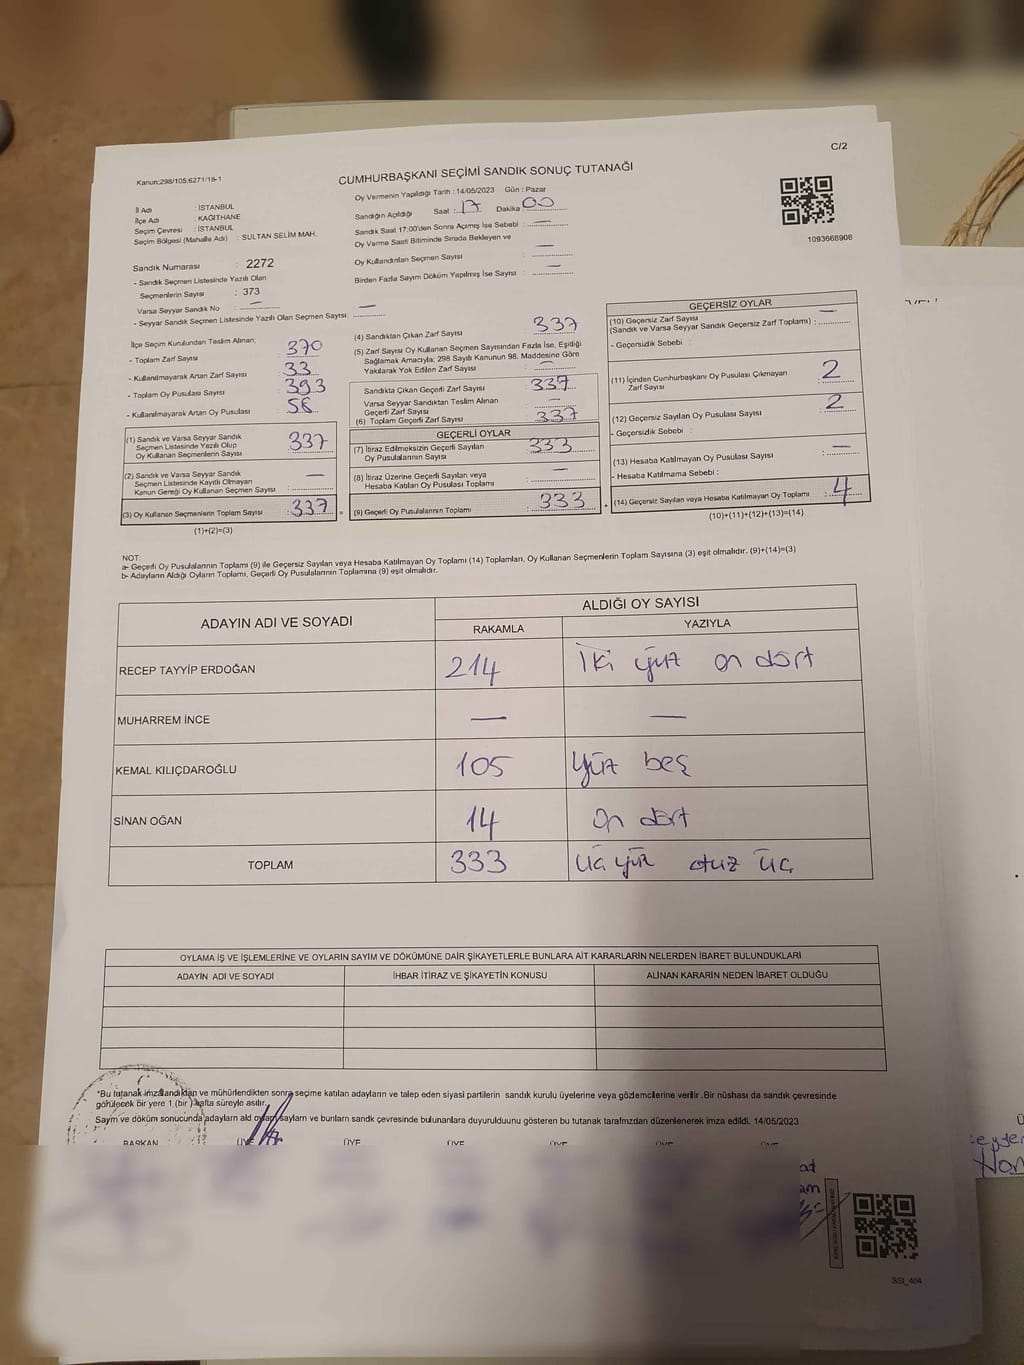 C/2
Kanun:298/105;6271/18-1
CUMHURBAŞKANI SEÇİMİ SANDIK SONUÇ TUTANAĞI
1093668906
İl Adı : İSTANBUL
İlçe Adı : KAĞITHANE
Seçim Çevresi : İSTANBUL
Seçim Bölgesi (Mahalle Adı) : SULTAN SELİM MAH.
Sandık Numarası : 2272
- Sandık Seçmen Listesinde Yazılı Olan
Seçmenlerin Sayısı : 373
Varsa Seyyar Sandık No : —
- Seyyar Sandık Seçmen Listesinde Yazılı Olan Seçmen Sayısı: —
Oy Vermenin Yapıldığı Tarih : 14/05/2023 Gün : Pazar
Sandığın Açıldığı Saat : 17 Dakika 00
Sandık Saat 17:00'den Sonra Açılmış İse Sebebi : —
Oy Verme Saati Bitiminde Sırada Bekleyen ve
Oy Kullandırılan Seçmen Sayısı : —
Birden Fazla Sayım Döküm Yapılmış İse Sayısı : —
İlçe Seçim Kurulundan Teslim Alınan;
- Toplam Zarf Sayısı : 370
- Kullanılmayarak Artan Zarf Sayısı : 33
- Toplam Oy Pusulası Sayısı : 393
- Kullanılmayarak Artan Oy Pusulası : 56
(1) Sandık ve Varsa Seyyar Sandık
Seçmen Listesinde Yazılı Olup
Oy Kullanan Seçmenlerin Sayısı : 337
(2) Sandık ve Varsa Seyyar Sandık
Seçmen Listesinde Kayıtlı Olmayan
Kanun Gereği Oy Kullanan Seçmen Sayısı : —
(3) Oy Kullanan Seçmenlerin Toplam Sayısı : 337
(1)+(2)=(3)
(4) Sandıktan Çıkan Zarf Sayısı : 337
(5) Zarf Sayısı Oy Kullanan Seçmen Sayısından Fazla İse, Eşitliği
Sağlamak Amacıyla; 298 Sayılı Kanunun 98. Maddesine Göre
Yakılarak Yok Edilen Zarf Sayısı : —
Sandıkta Çıkan Geçerli Zarf Sayısı : 337
Varsa Seyyar Sandıktan Teslim Alınan
Geçerli Zarf Sayısı : —
(6) Toplam Geçerli Zarf Sayısı : 337
GEÇERLİ OYLAR
(7) İtiraz Edilmeksizin Geçerli Sayılan
Oy Pusulalarının Sayısı : 333
(8) İtiraz Üzerine Geçerli Sayılan veya
Hesaba Katılan Oy Pusulası Toplamı : —
(9) Geçerli Oy Pusulalarının Toplamı : 333
GEÇERSİZ OYLAR
(10) Geçersiz Zarf Sayısı
(Sandık ve Varsa Seyyar Sandık Geçersiz Zarf Toplamı) : —
- Geçersizlik Sebebi :
(11) İçinden Cumhurbaşkanı Oy Pusulası Çıkmayan
Zarf Sayısı : 2
(12) Geçersiz Sayılan Oy Pusulası Sayısı : 2
- Geçersizlik Sebebi :
(13) Hesaba Katılmayan Oy Pusulası Sayısı : —
- Hesaba Katılmama Sebebi :
(14) Geçersiz Sayılan veya Hesaba Katılmayan Oy Toplamı : 4
(10)+(11)+(12)+(13)=(14)
NOT:
a- Geçerli Oy Pusulalarının Toplamı (9) ile Geçersiz Sayılan veya Hesaba Katılmayan Oy Toplamı (14) Toplamları, Oy Kullanan Seçmenlerin Toplam Sayısına (3) eşit olmalıdır. (9)+(14)=(3)
b- Adayların Aldığı Oyların Toplamı, Geçerli Oy Pusulalarının Toplamına (9) eşit olmalıdır.
ADAYIN ADI VE SOYADI
ALDIĞI OY SAYISI
RAKAMLA YAZIYLA
RECEP TAYYİP ERDOĞAN 214 İki yüz on dört
MUHARREM İNCE — —
KEMAL KILIÇDAROĞLU 105 Yüz beş
SİNAN OĞAN 14 On dört
TOPLAM 333 üç yüz otuz üç
OYLAMA İŞ VE İŞLEMLERİNE VE OYLARIN SAYIM VE DÖKÜMÜNE DAİR ŞİKAYETLERLE BUNLARA AİT KARARLARIN NELERDEN İBARET BULUNDUKLARI
ADAYIN ADI VE SOYADI İHBAR İTİRAZ VE ŞİKAYETİN KONUSU ALINAN KARARIN NEDEN İBARET OLDUĞU
*Bu tutanak imzalandıktan ve mühürlendikten sonra seçime katılan adayların ve talep eden siyasi partilerin sandık kurulu üyelerine veya gözlemcilerine verilir .Bir nüshası da sandık çevresinde
görülecek bir yere 1 (bir) hafta süreyle asılır.
Sayım ve döküm sonucunda adayların aldığı oyların sayılarını ve bunların sandık çevresinde bulunanlara duyurulduğunu gösteren bu tutanak tarafımızdan düzenlenerek imza edildi. 14/05/2023
BAŞKAN ÜYE ÜYE ÜYE ÜYE ÜYE ÜYE
SSI_404